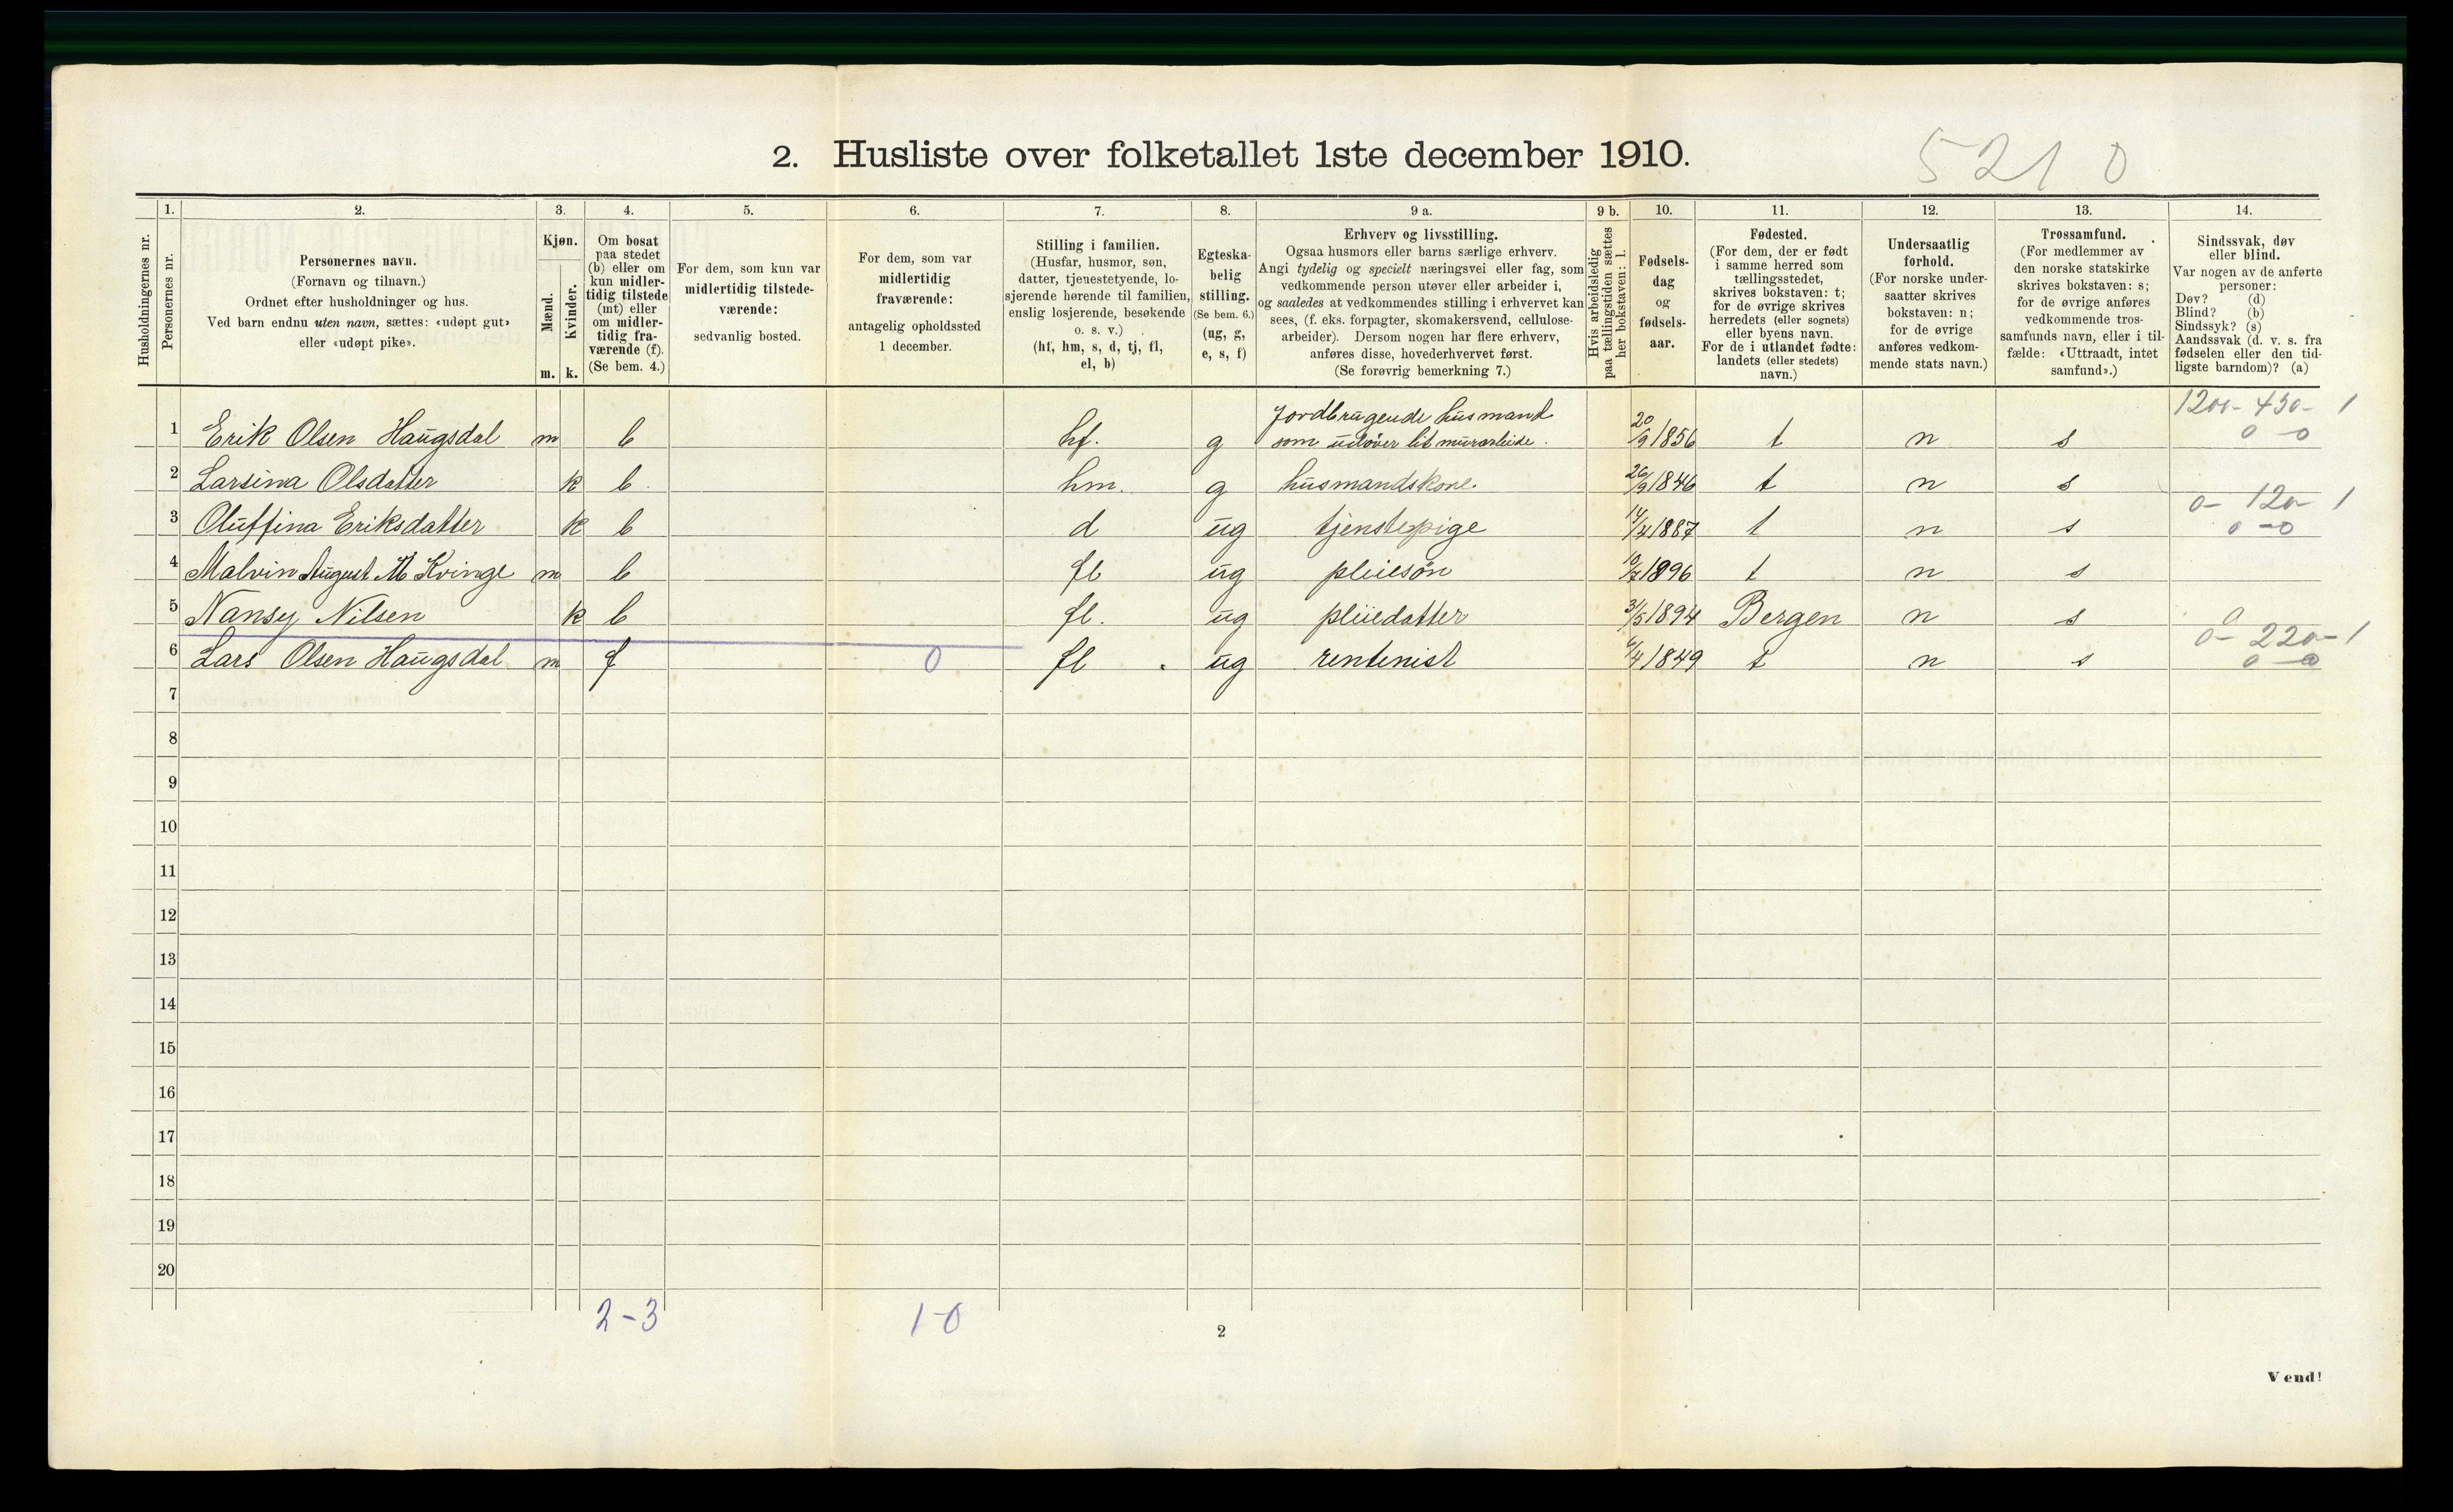 2. Husliste over folketallet 1ste december 1910.
521 0
Husholdningernes nr.
1.
Personernes nr.
2.
Personernes navn.
(Fornavn og tilnavn.)
Ordnet efter husholdninger og hus.
Ved barn endnu uten navn, sættes: «udøpt gut»
eller «udøpt pike».
3.
Kjøn.
Mænd.
Kvinder.
m. k.
4.
Om bosat
paa stedet
(b) eller om
kun midler-
tidig tilstede
(mt) eller
om midler-
tidig fra-
værende (f).
(Se bem. 4.)
5.
For dem, som kun var
midlertidig tilstede-
værende:
sedvanlig bosted.
6.
For dem, som var
midlertidig
fraværende:
antagelig opholdssted
1 december.
7.
Stilling i familien.
(Husfar, husmor, søn,
datter, tjenestetyende, lo-
sjerende hørende til familien,
enslig losjerende, besøkende
o. s. v.)
(hf, hm, s, d, tj, fl,
el, b)
8.
Egteska-
belig
stilling.
(Se bem. 6.)
(ug, g,
e, s, f)
9 a.
Erhverv og livsstilling.
Ogsaa husmors eller barns særlige erhverv.
Angi tydelig og specielt næringsvei eller fag, som
vedkommende person utøver eller arbeider i,
og saaledes at vedkommendes stilling i erhvervet kan
sees, (f. eks. forpagter, skomakersvend, cellulose-
arbeider). Dersom nogen har flere erhverv,
anføres disse, hovederhvervet først.
(Se forøvrig bemerkning 7.)
9 b.
Hvis arbeidsledig
paa tællingstiden sættes
her bokstaven: l.
10.
Fødsels-
dag
og
fødsels-
aar.
11.
Fødested.
(For dem, der er født
i samme herred som
tællingsstedet,
skrives bokstaven: t;
for de øvrige skrives
herredets (eller sognets)
eller byens navn.
For de i utlandet fødte:
landets (eller stedets)
navn.)
12.
Undersaatlig
forhold.
(For norske under-
saatter skrives
bokstaven: n;
for de øvrige
anføres vedkom-
mende stats navn.)
13.
Trossamfund.
(For medlemmer av
den norske statskirke
skrives bokstaven: s;
for de øvrige anføres
vedkommende tros-
samfunds navn, eller i til-
fælde: «Uttraadt, intet
samfund».)
14.
Sindssvak, døv
eller blind.
Var nogen av de anførte
personer:
Døv? (d)
Blind? (b)
Sindssyk? (s)
Aandssvak (d. v. s. fra
fødselen eller den tid-
ligste barndom)? (a)
1 Erik Olsen Haugsdal m b hf. g Jordbrugende husmand
som udøver lit murarbeide. 20/9 1856 t n s 1200- 450- 1
0 -0
2 Larsina Olsdatter k b. hm. g husmandskone. 26/9 1846 t n s
3 Oluffina Eriksdatter k b d ug tjenstepige 14/4 1887 t n s 0- 120- 1
0 -0
4 Malvin August M Kvinge m b fl ug pleiesøn 10/7 1896 t n s
5 Nansy Nilsen k b fl. ug pleiedatter 3/5 1894 Bergen n s 0
6 Lars Olsen Haugsdal m f 0 fl. ug rentenist 6/4 1849 t n s 0- 220- 1
0 -0
7
8
9
10
11
12
13
14
15
16
17
18
19
20
2-3 1-0
2
Vend!